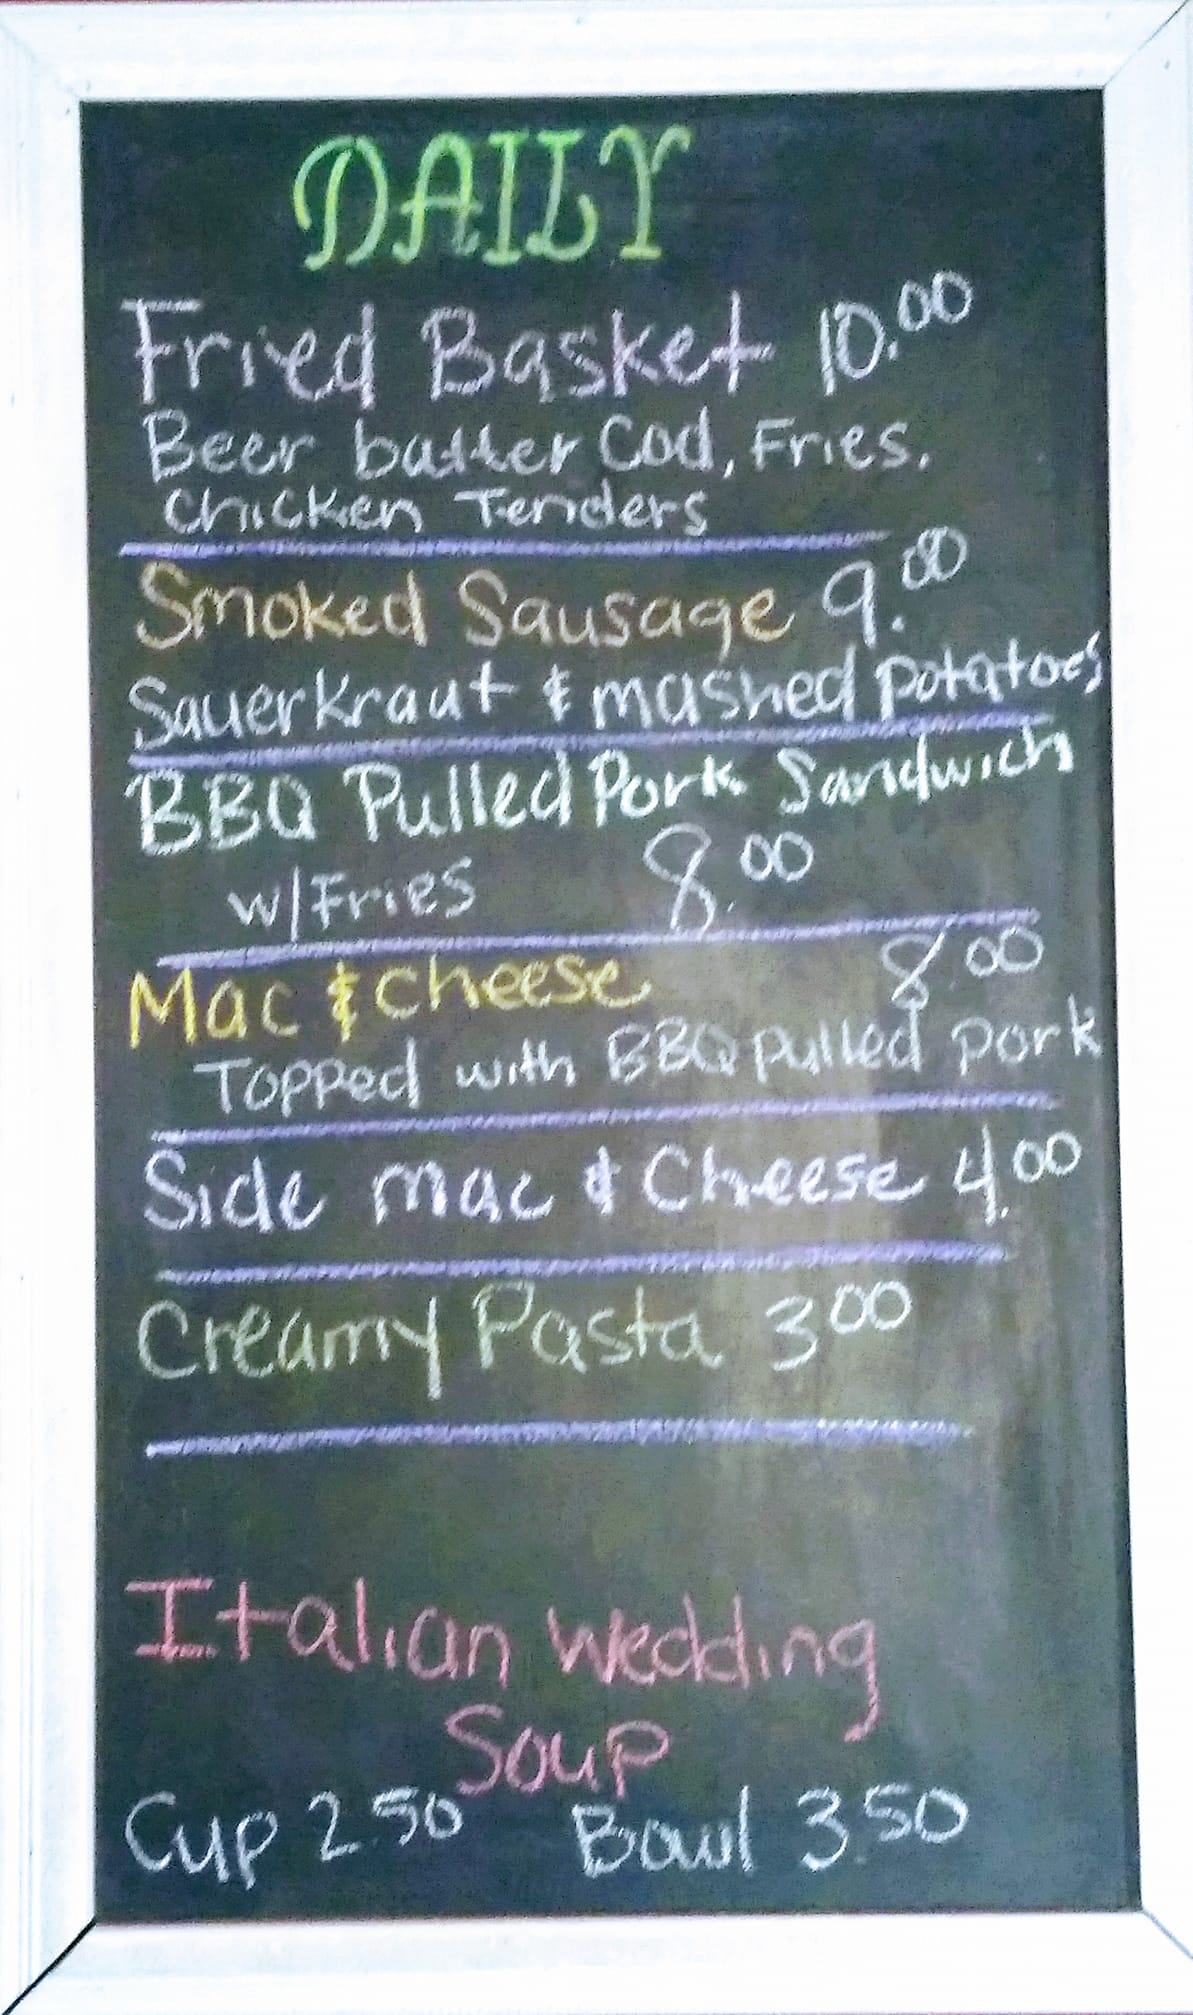 DAILY
Fried Basket 10.00
Beer batter Cod, Fries,
Chicken Tenders
Smoked Sausage 9.00
Sauerkraut & mashed potatoes
BBQ Pulled Pork Sandwich
w/Fries 8.00
Mac & cheese 8.00
Topped with BBQ pulled pork
Side mac & Cheese 4.00
Creamy Pasta 3 00
Italian Wedding
Soup
Cup 2.50 Bowl 3.50